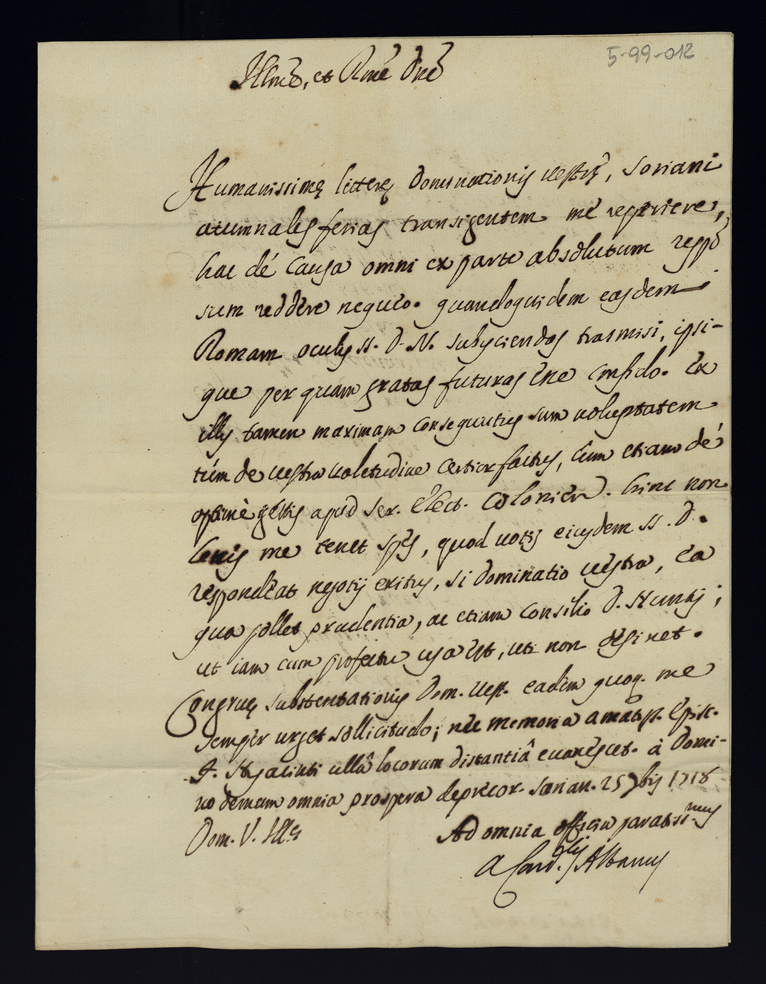 5-99-012
Illmē, et Rmē Dnē
Humanissimę litterę Dominationis vestrę, Soriani
autumnales ferias transigentem me reperiere,
hac dé Causa omni ex parte absolutum respō
sum reddere nequeo. quandoquidem easdem
Romam oculis SS. D. N. subijciendas trasmisi, ipsi-
que per quam gratas futuras confido. Ex
illis tamen maximam consequutus sum voluptatem
túm de vestra valetudine certior factus, cum etiam dé
optimè gestis apud Ser. Elect. Colonien. hinc non
levis me tenet spes, quod votis eiusdem SS. D.
respondeat negotij exitus, si dominatio vestra, ea
qua pollet prudentia, ac etiam Consilio D.
ut iam cum profectu usa est, uti non desinet.
Congruę substentationis Dom. vest. eadem quoq. me
semper urget sollicitudo; nec memoria amātiss. Epist.
F. Hyacinti ullâ locorum distantiâ evanescet. à Domi-
no demum omnia prospera deprecor. Sorian. 25 7bris 1718
Dom. V. Illę
Ad omnia officia paratissimus
A Card.lis Albanus